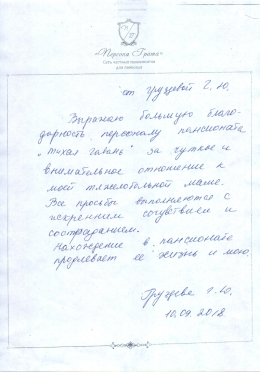 «Персона Грата»
Сеть частных пансионатов
для пожилых
от Груздевой Г. Ю.
Выражаю большую благо-
дарность персоналу пансионата
„Тихая Гавань" за чуткое и
внимательное отношение к
моей тяжелобольной маме.
Все просьбы выполняются с
искренним сочувствием и
состраданием.
Нахождение в пансионате
продлевает её жизнь и мою.
Груздева Г.Ю.
10.09.2018